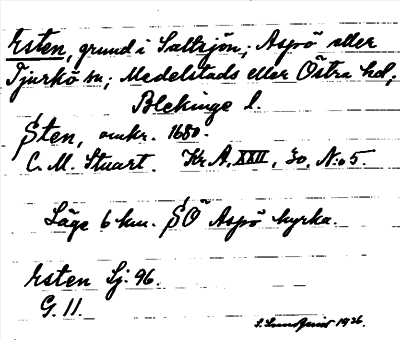 Esten, grund i Saltsjön; Aspö eller
Tjurkö sn; Medelstads eller Östra hd,
Blekinge l.
Sten, omkr. 1680.
C. M. Stuart. Kr. A. XXII, 30, No 5.
Läge 6 km. SÖ Aspö kyrka.
Esten Sj. 96.
G. 11.
S. Lundqvist 1926.